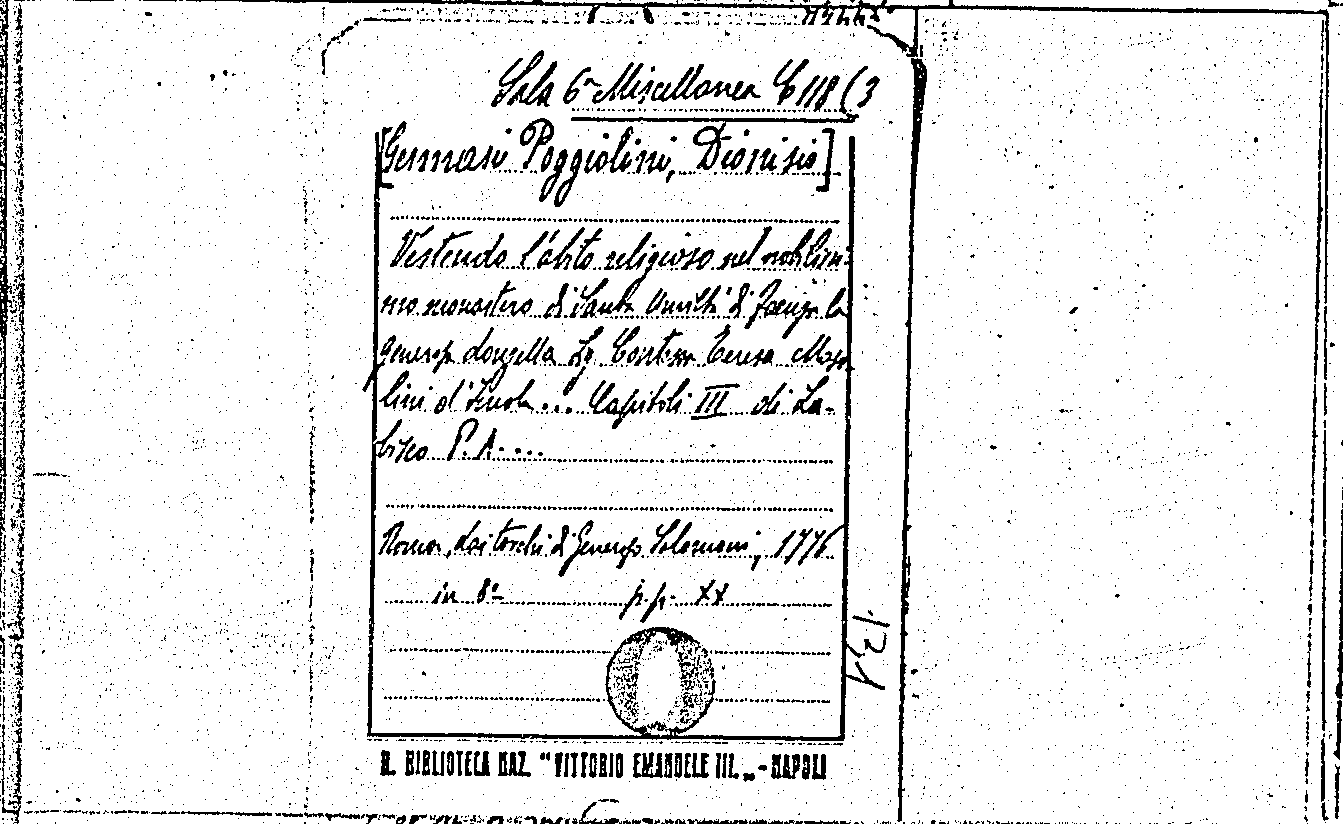 Sala 6ª Miscellanea C 118 (3
[Gennari Poggiolini, Dionisio]
Vestendo l'abito religioso nel nobilissi-
mo monastero di Santa Umiltà di Faenza la
generosa donzella Sig. Contessa Teresa
lini d'Imola... Capitoli III di La-
bisco P. A. ...
Roma, dai torchi di Generoso Salomoni, 1776
in 8º p.p. XX
131
R. BIBLIOTECA NAZ. "VITTORIO EMANUELE III." - NAPOLI